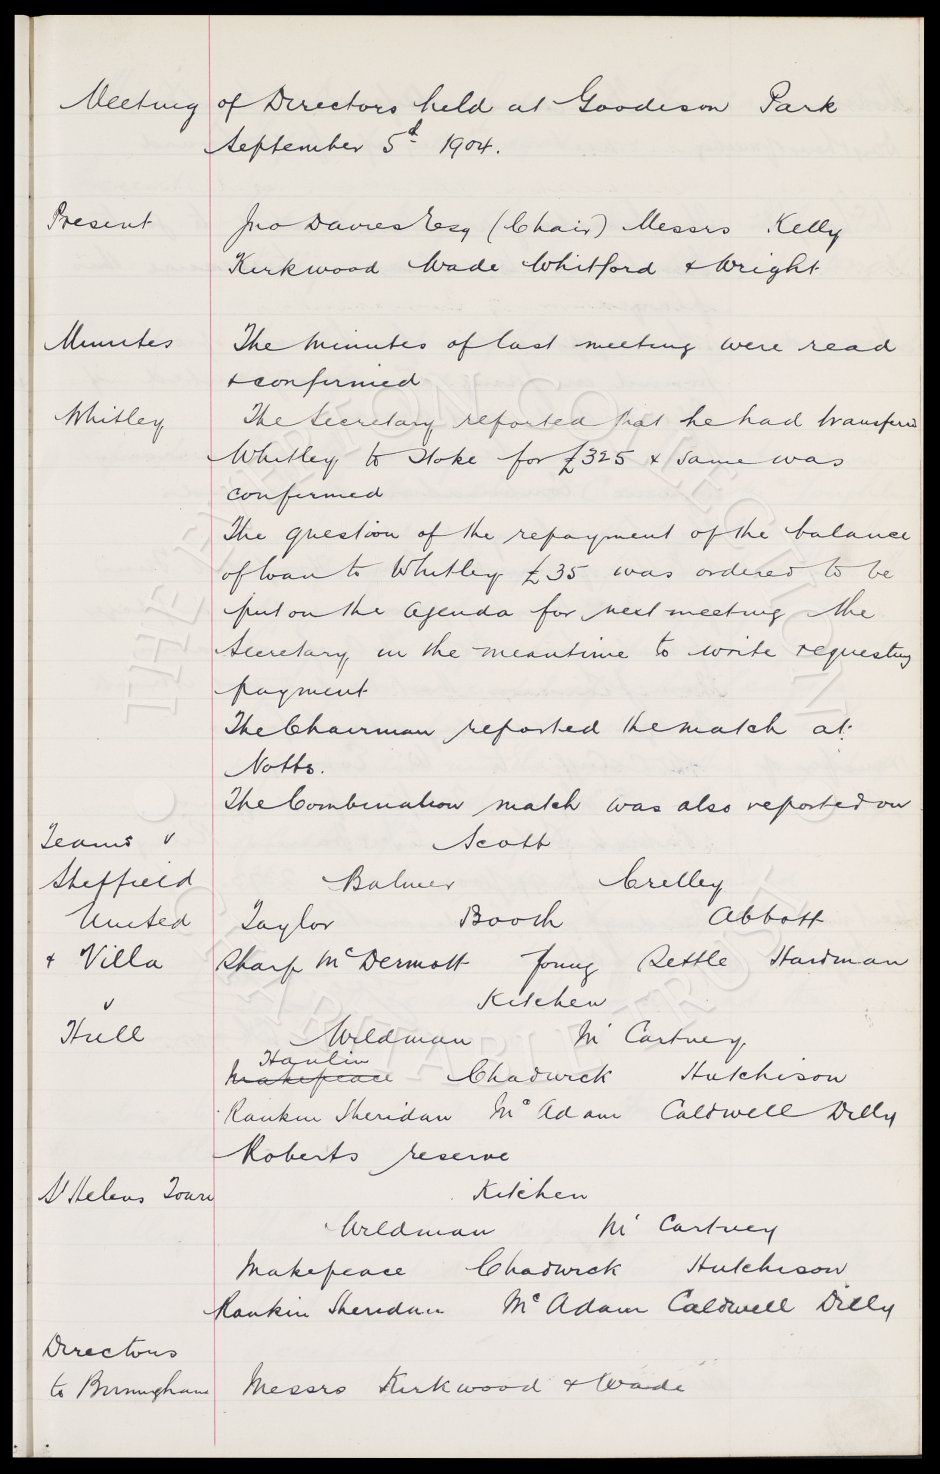 Meeting of Directors held at Goodison Park
September 5d 1904.
Present Jno Davies Esq (Chair) Messrs Kelly
Kirkwood Wade Whitford & Wright
Minutes The minutes of last meeting were read
& confirmed
Whitley The Secretary reported that he had transferred
Whitley to Stoke for £325 & same was
confirmed
The question of the repayment of the balance
of loan to Whitley £35 was ordered to be
put on the agenda for next meeting the
Secretary in the meantime to write requesting
payment
The Chairman reported the match at
Notts.
The Combination match was also reported on
Teams v Scott
Sheffield Balmer Crelley
United Taylor Booth Abbott
& Villa Sharp McDermott Young Settle Hardman
v Kitchen
Hull Wildman Mc Cartney
Hanlin
Makepeace Chadwick Hutchison
Rankin Sheridan Mc Adam Caldwell Dilly
Roberts reserve
St Helens Town Kitchen
Wildman Mc Cartney
Makepeace Chadwick Hutchison
Rankin Sheridan Mc Adam Caldwell Dilly
Directors
to Birmingham Messrs Kirkwood & Wade
THE EVERTON COLLECTION
CHARITABLE TRUST